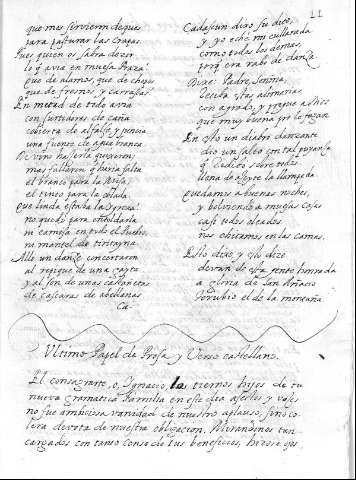 11
que mos sirvieron de pues
para pasturar las crapas
Pues quien os sabra dezir
lo q avia en muesa Praza
Que de alamos, que de chopos
que de fresnos y carrascas
En metad de todo avia
con surtidores de caña
cubierta de alfalfe, y juncia
una fuente de agua branca
De vino hazerla quisieron
mas fallaron q hazia falta
el branco para la Missa
el tinto para la colada
Que linda estaba la Igresia
no quedo para endoldarla
ni camisa en todo el Puebro
ni mantel de tiritayna
Alli un danze concertaron
al repique de una gayta
y al son de unas castañetas
de cascaras de abellanas
Ca-
Cadascun dixo su dico,
y yo eche mi cullarada
como todos los demas,
porq era rabo de danza
Dixe: Padre, Señora,
reciba estas alimarias
con agrado, y pregue a Dios
que muy buena pro lo fagan
En esto un diabro danzante
dio un salto con tal puyanza
q de dito sobre todos
llena de azeyte la llampada
Quedamos a buenas noches,
y bolviendo a muesas casas
casi todos oleados
nos chitamos en las camas.
Esto dixo, y esto dize
devan de esta gente honrada
a groria de San Inacio
Torubio el de la montaña
Ultimo Papel de Prosa y Verso castellano.
El consagrarte, o, Ignacio, los tiernos hijos de tu
nueva gramatica Familia en este dia afectos y voces
no fue ambiciosa vanidad de nuestro aplauso, sino co
lera devota de nuestra obligacion. Mirandonos tan
cargados con tanto censo de tus beneficios, hizose que